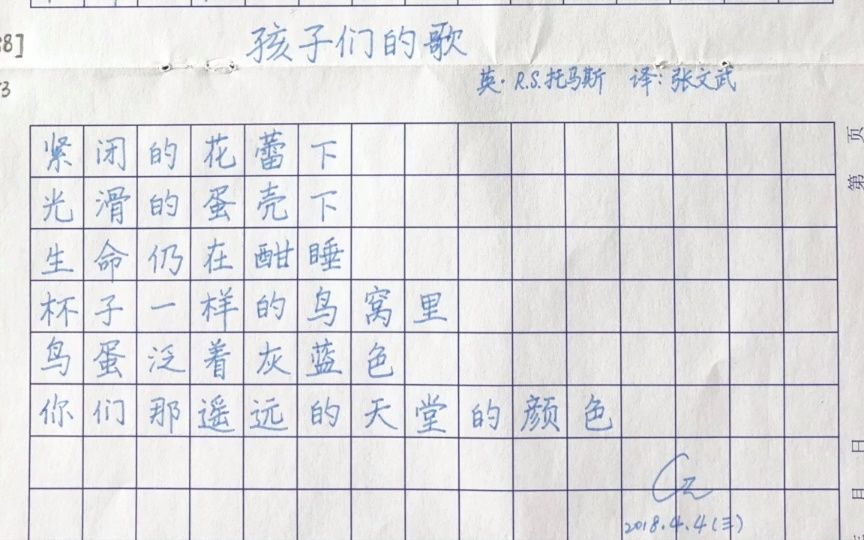 88]
孩子们的歌
3
英·R.S.托马斯 译:张文武
紧闭的花蕾下
光滑的蛋壳下
生命仍在酣睡
杯子一样的鸟窝里
鸟蛋泛着灰蓝色
你们那遥远的天堂的颜色
2018.4.4(三)
第 页
月 日